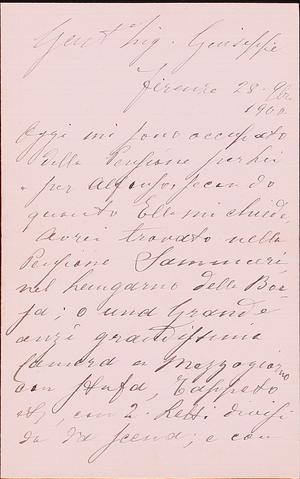 Gent. Sig. Giuseppe
Firenze 28. 9bre
1900.
Oggi mi sono occupato
della Pensione per Lei
e per Alfonso, secondo
quanto Ella mi chiede,
Avrei trovato nella
Pensione
nel Lungarno della Bor
sa; o una Grande
anzi grandissima
Camera a Mezzogiorno
con Stufa, Tappeto
con 2. Letti divisi
da da scena; e con